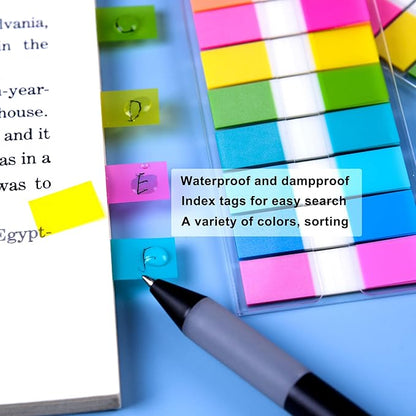 vania,
in the
-year-
house.
and it
as in a
was to
Egypt-
C
D
E
F
Waterproof and dampproof
Index tags for easy search
A variety of colors, sorting